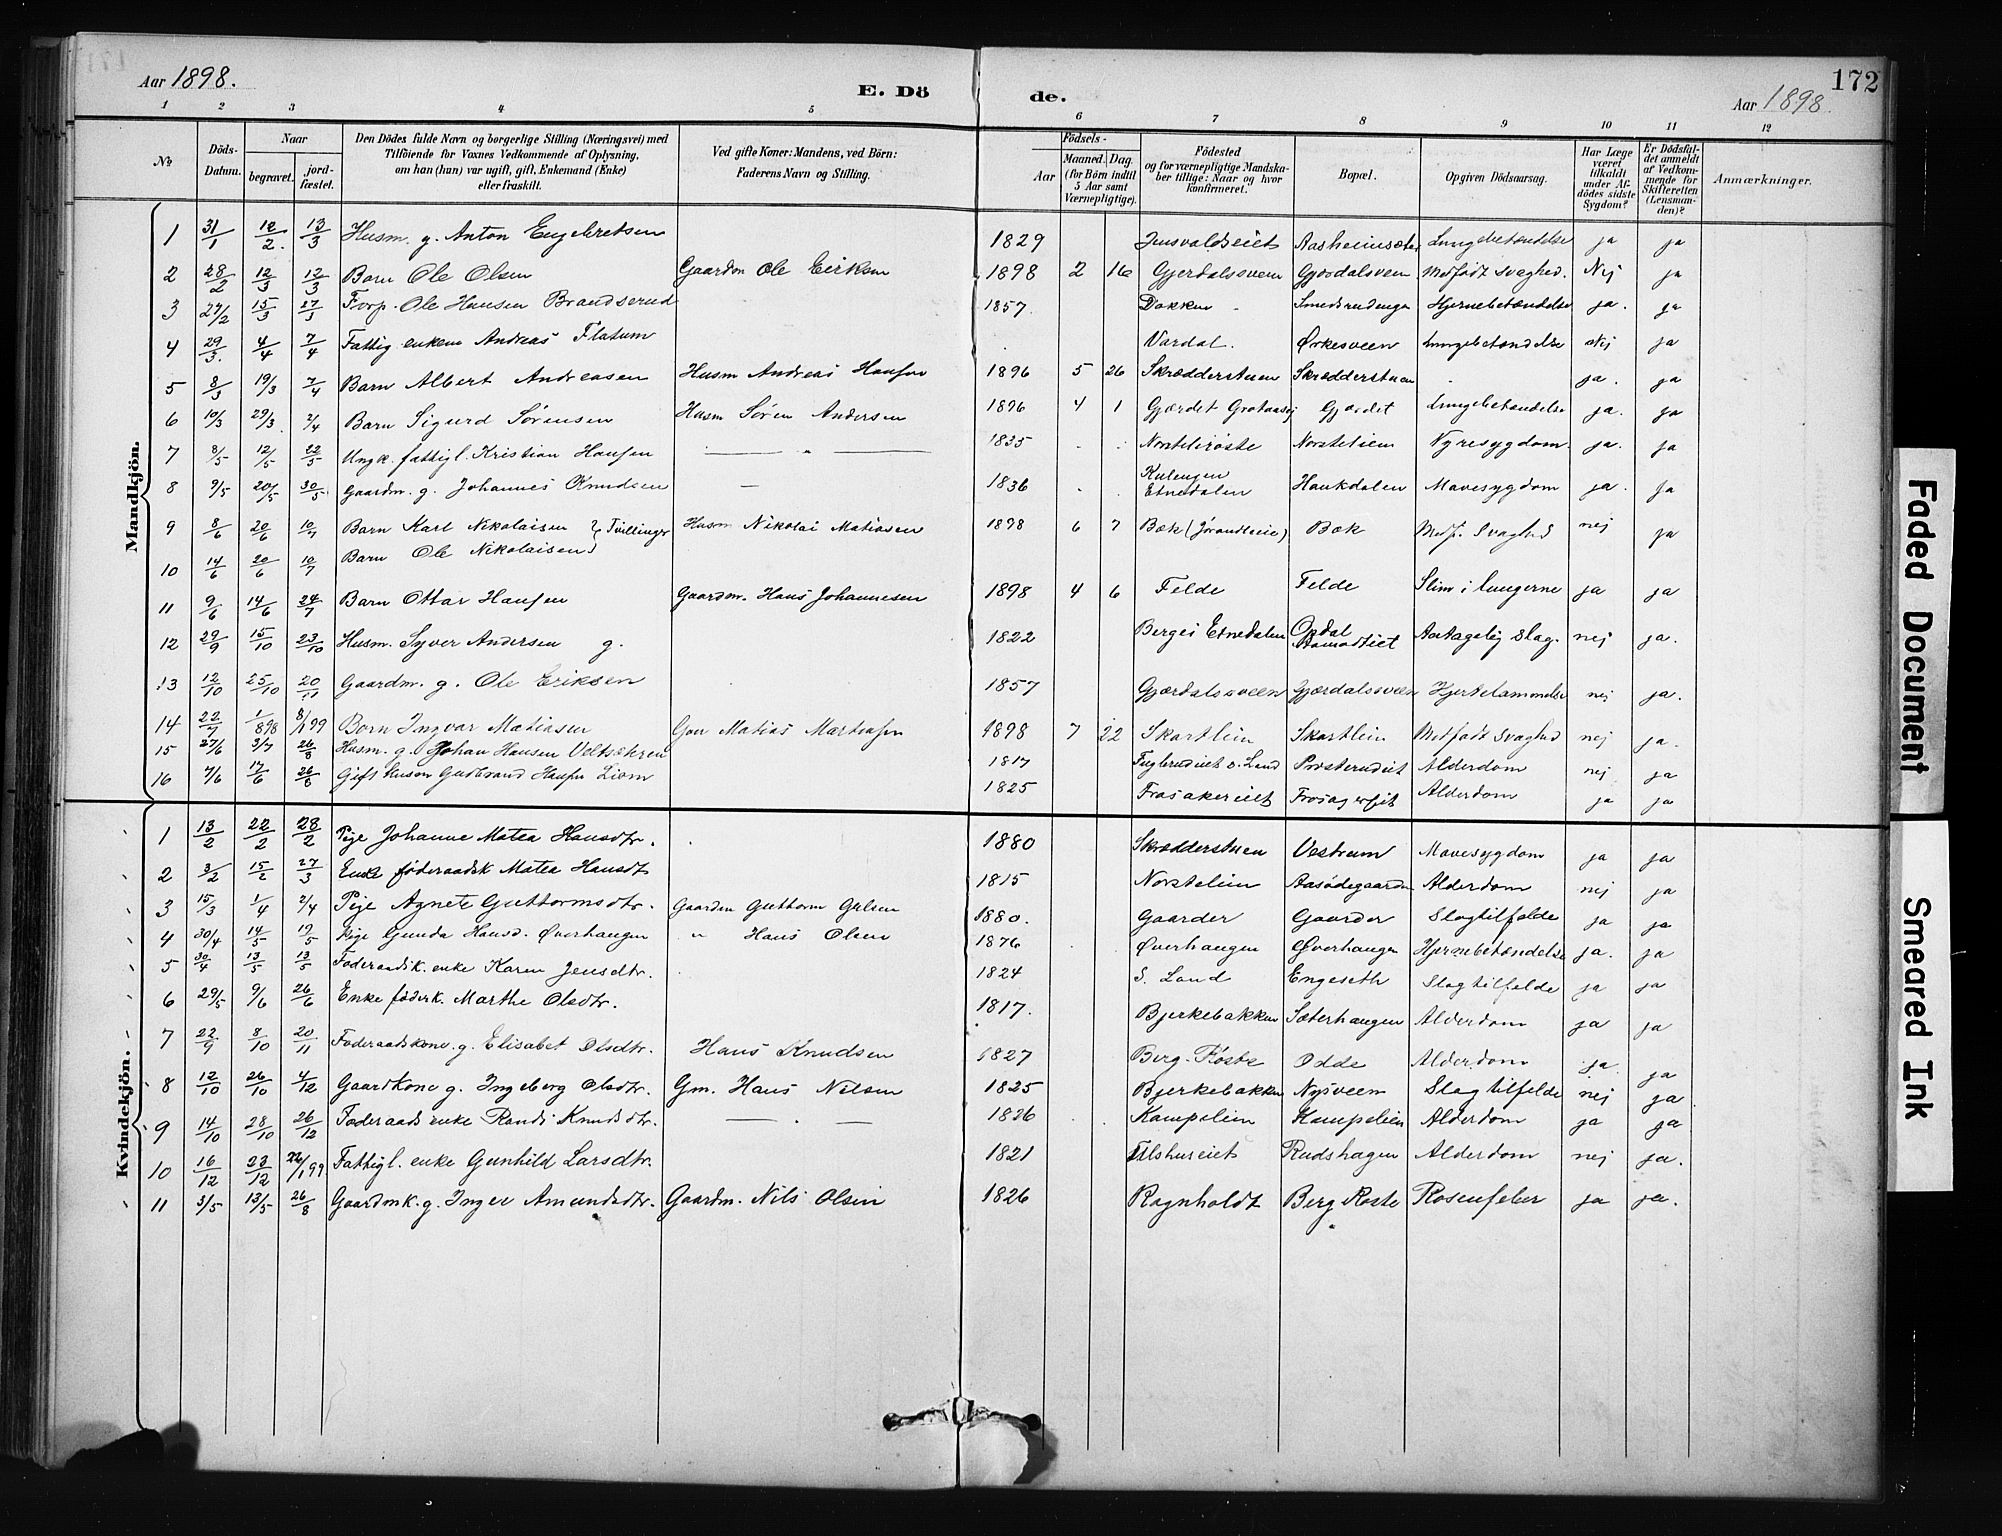 172
Aar 1898.
E. Dö de.
Aar 1898.
1 2 3 4 5 6 7 8 9 10 11 12
No
Döds-Datum.
Naar
begravet.
jord-fæstet.
Den Dödes fulde Navn og borgerlige Stilling (Næringsvei) med
Tilföiende for Voxnes Vedkommende af Oplysning,
om han (hun) var ugift, gift, Enkemand (Enke)
eller fraskilt.
Ved gifte Koner: Mandens, ved Börn:
Faderens Navn og Stilling.
Födsels-
Aar
Maaned. Dag.
(for Börn indtil
5 Aar samt
Værnepligtige).
Födested
og for værnepligtige Mandska-
ber tillige: Naar og hvor
konfirmeret.
Bopæl.
Opgiven Dödsaarsag.
Har Læge
været
tilkaldt
under Af-
dödes sidste
Sygdom?
Er Dödsfal-
det anmeldt
af Vedkom-
mende for
Skifteretten
(Lensman-
den)?
Anmærkninger.
Mandkjön.
1 31/1 12/2. 13/3 Husm. g. Anton Engebretsen 1829 Jensvoldseiet Aasheimsæter Lungebetændelse ja ja
2 28/2 12/3 12/3 Barn Ole Olsen Gaardm Ole Eriksen 1898 2 16 Gjerdalssveen Gjordalsveen Medfødt Svaghed. Nej ja
3 27/2 15/3 27/3 Forp. Ole Hansen Brandserud 1857. Dokken Smedsrudenga Hjernebetændelse ja. ja
4 29/3. 4/4 7/4 Fattig enkem Andreas Flatum Vardal. Ørkesveen Lungebetændelse Nej ja
5 8/3 19/3 7/4 Barn Albert Andreasen Husm Andreas Hansen 1896 5 26 Skrædderstuen Skrædderstuen . ja. ja
6 10/3 29/3. 2/4 Barn Sigurd Sørensen Husm Søren Andersen 1896 4 1 Gjerdet Gjærdet Lungebetændelse ja. ja
7 8/5 12/5 22/5 Ungk. fattigl. Kristian Hansen — " — 1835 Norstelien Nyresygdom. ja. ja
8 9/5 20/5 30/5 Gaardm. g. Johannes Knudsen — 1836 Etnedalen Haukdalen Mavesygdom ja. ja
9 8/6 20/6 10/7 Barn Karl Nikolaisen } Tvillinger Husm Nikolai Matiasen 1898 6 7 Bæk (Jørandlieie) Bæk Medf. Svaghed nej ja
10 14/6 20/6 10/7 Barn Ole Nikolaisen }
11 9/6 14/6 24/7 Barn Ottar Hansen Gaardm. Hans Johannesen 1898 4 6 Felde Felde Slim i lungerne ja ja
12 29/9 15/10 23/10 Husm. Syver Andersen g. 1822 Berge i Etnedalen Opdal Slag. nej ja.
13 12/10 25/10 20/11 Gaardm. g. Ole Eriksen 1857 Gjærdalssveen Gjærdalssveen Hjertelammelse nej ja.
14 22/7 1/8 98 8/1 99 Barn Ingvar Matiasen Gm Matias Martinsen 1898 7 22 Skartlein Skartlein Medfødt Svaghed nej ja.
15 27/6 3/7 26/8 Husm. g. Johan Hansen Veltsæhren 1817 Fuglerudeiet s. Land Prosterudeiet Alderdom nej ja
16 7/6 17/6 26/6 Gift husm Gudbrand Hansen Liom 1825 Frøsakereiet Alderdom ja ja
Kvindekjön.
1 13/2 22/2 28/2 Pige Johanne Matea Hansdtr. 1880 Skrædderstuen Vestrum Mavesygdom ja ja
2 3/2 15/2 27/3 Enke føderaadsk Matea Hansdt 1815 Norstelien Aasødegaarden Alderdom nej ja
3 15/3 1/4 2/4 Pige Agnete Guttormsdtr. Gaardm Guttorm 1880. Gaarder Gaarder Slagtilfælde ja ja
4 30/4 14/5 19/5 Pige Gunda Hansd. Øverhaugen " Hans Olsen 1876 Øverhaugen Øverhaugen Hjernebetændelse ja. ja
5 30/4 13/5 13/5 Føderaadsk. enke Karen Jensdtr. 1824 S. Land Engeseth Slagtilfælde ja ja
6 29/5 9/6 26/6 Enke føderk. Marthe Olsdtr. 1817. Bjerkebakken Sæterhaugen Alderdom ja ja
7 22/9 8/10 20/11 Føderaadskone. g. Elisabet Olsdtr. Hans Knudsen 1827 Berg. Roste Odde Alderdom ja. ja
8 12/10 26/10 4/12 Gaardkone g. Ingeborg Olsdtr. Gm. Hans Nilsen 1825 Bjerkebakken Nysveen Slagtilfælde nej ja
9 14/10 28/10 26/12 Føderaads enke Randi Knudsdtr. — " — 1826 Kampelien Kampelien Alderdom ja ja
10 16/12 23/12 22/1 99 Fattigl. enke Gunhild Larsdtr. 1821 Rudshagen Alderdom nej ja.
11 3/5 13/5 26/8 Gaardmk. g. Inger Amundsdtr. Gaardm. Nils Olsen 1826 Ragnholdt Berg Roste Rosenfeber ja ja.
Faded Document
Smeared Ink